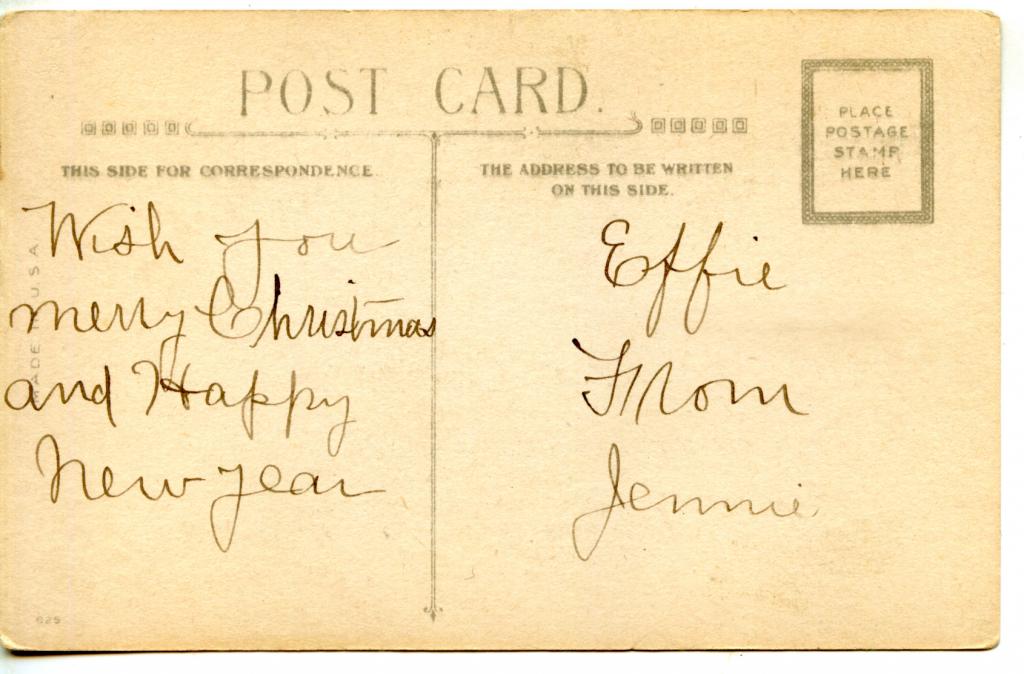 POST CARD.
THIS SIDE FOR CORRESPONDENCE
THE ADDRESS TO BE WRITTEN
ON THIS SIDE.
PLACE
POSTAGE
STAMP
HERE
Wish you
merry Christmas
and Happy
New year
Effie
From
Jennie
MADE IN USA
625